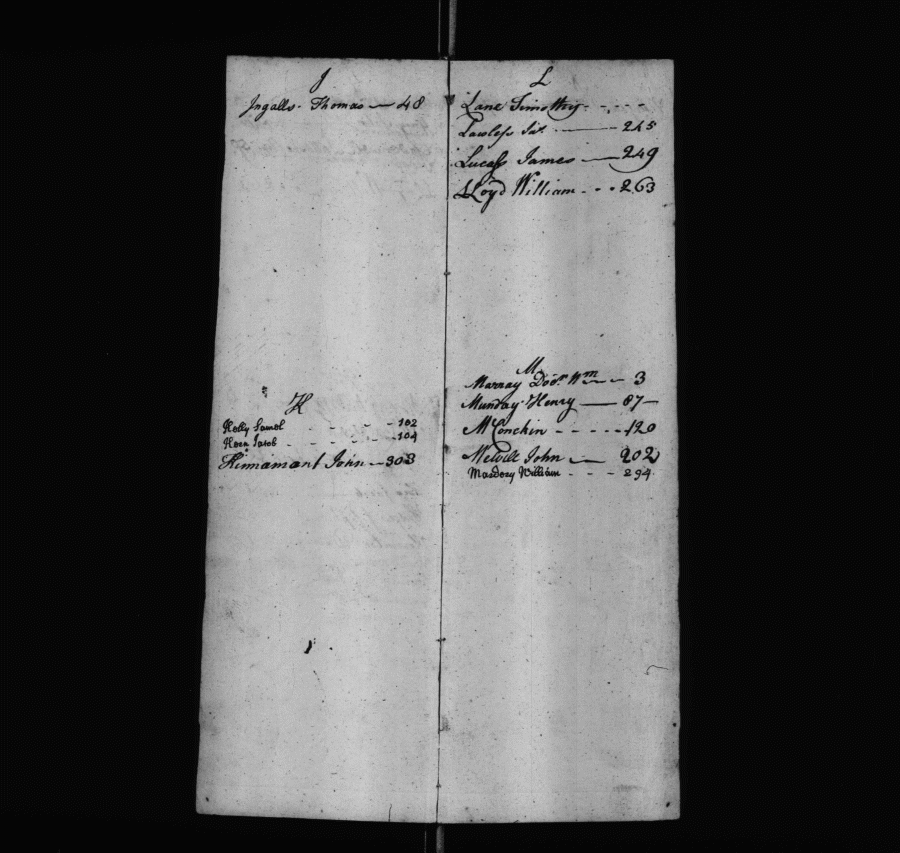 J
Ingalls Thomas — 48
K
Kelly Saml - - - 102
Keen Jacob - - - 104
Kinnamant John — 303
L
Lane Timothy - - - -
Lawless Jas. — 245
Lucass James — 249
LLoyd William - - - 263
M
Murray Docr. Wm — 3
Munday Henry — 87 —
McConchin - - - - - 120
Melvill John — 202
William - - - 294